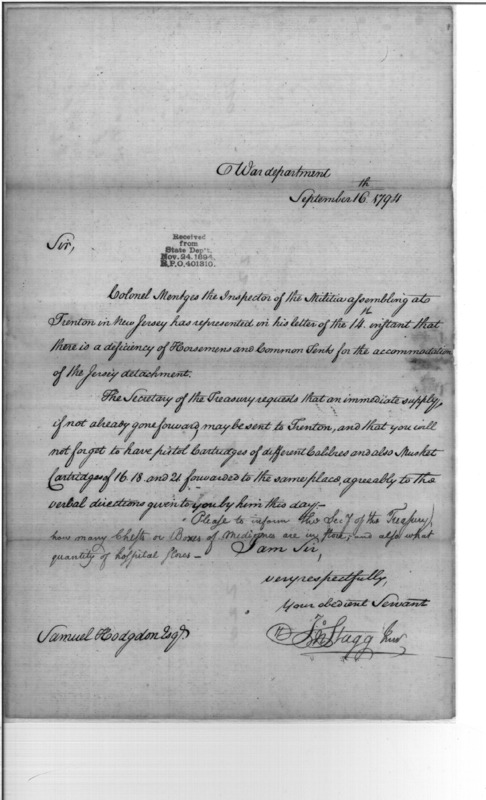 War department
September 16th 1794
Sir,
Received
from
State Dep't.
Nov. 24, 1894,
R.P.O. 401310.
Colonel Mentges the Inspector of the Militia assembling at
Trenton in New Jersey has represented in his letter of the 14th instant that
there is a deficiency of Horsemens and Common Tents for the accommodation
of the Jersey detachment.
The Secretary of the Treasury requests that an immediate supply,
if not already gone forward, may be sent to Trenton, and that you will
not forget to have pistol Cartridges of different Calibres and also Musket
Cartridges of 16. 18. and 21. forwarded to the same place, agreably to the
verbal directions given to you by him this day.—
Please to inform the Secy of the Treasury
how many Chests or Boxes of Medicine are in store, and also what
quantity of hospital stores—
I am Sir,
very respectfully,
Your obedient Servant
Jno Stagg Junr
Samuel Hodgdon Esqr.